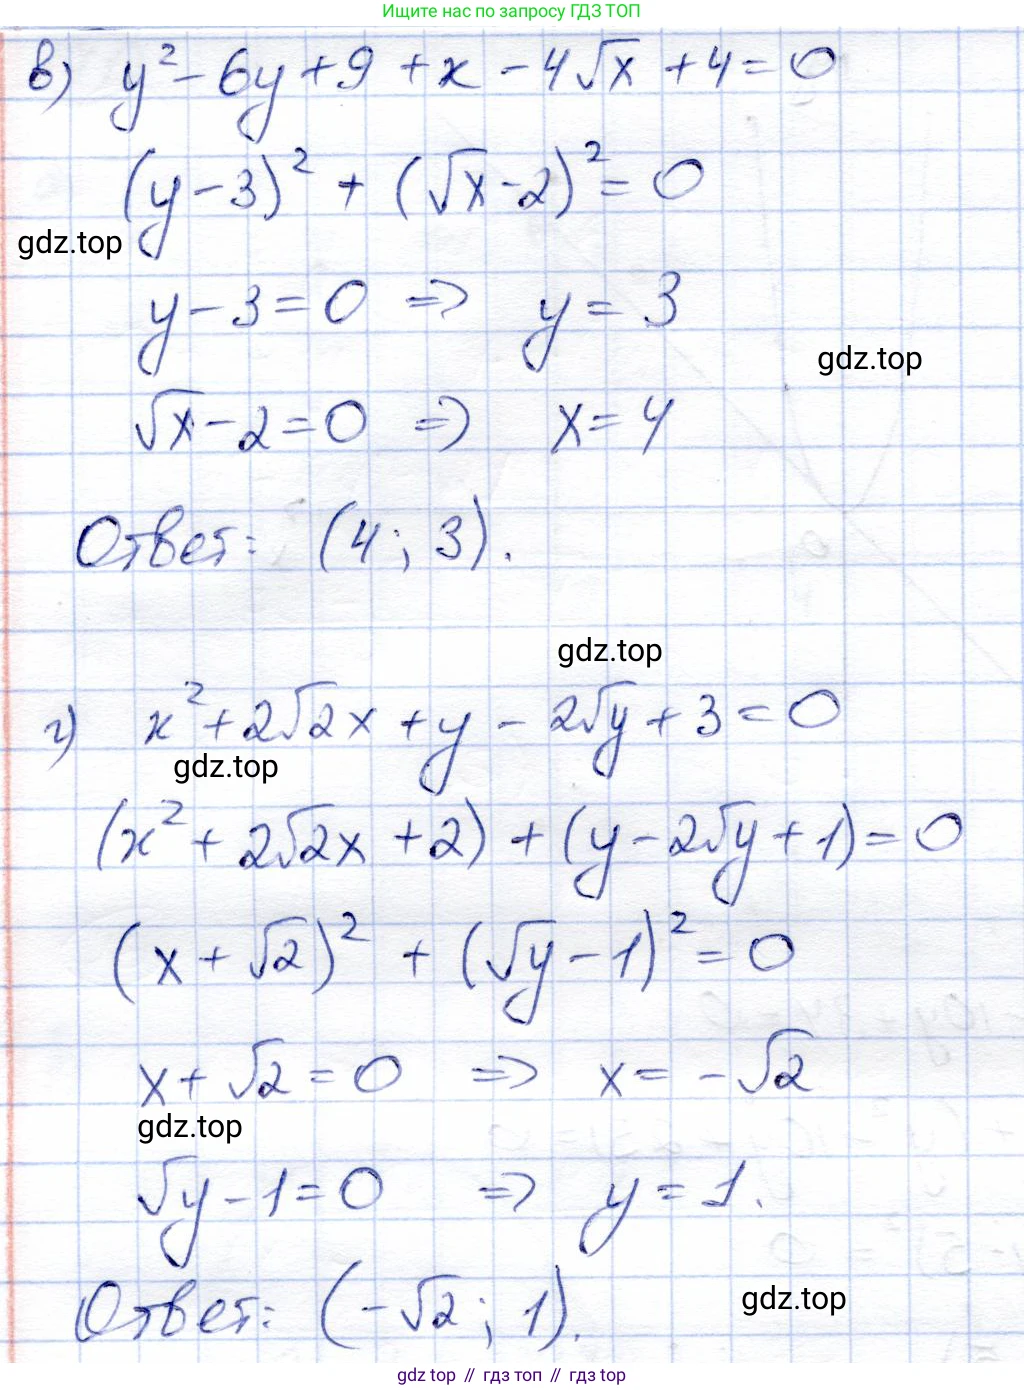 Ищите нас по запросу ГДЗ ТОП
в) y² - 6y + 9 + x - 4√x + 4 = 0
(y - 3)² + (√x - 2)² = 0
gdz.top
y - 3 = 0 => y = 3
gdz.top
√x - 2 = 0 => x = 4
Ответ: (4; 3).
gdz.top
г) x² + 2√2x + y - 2√y + 3 = 0
gdz.top
(x² + 2√2x + 2) + (y - 2√y + 1) = 0
(x + √2)² + (√y - 1)² = 0
x + √2 = 0 => x = -√2
gdz.top
√y - 1 = 0 => y = 1.
Ответ: (-√2; 1).
gdz.top
gdz top // гдз топ // gdz top